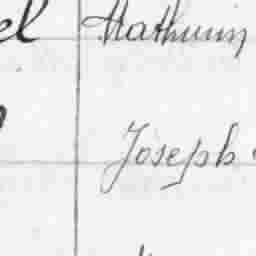 el Mathurin
Joseph